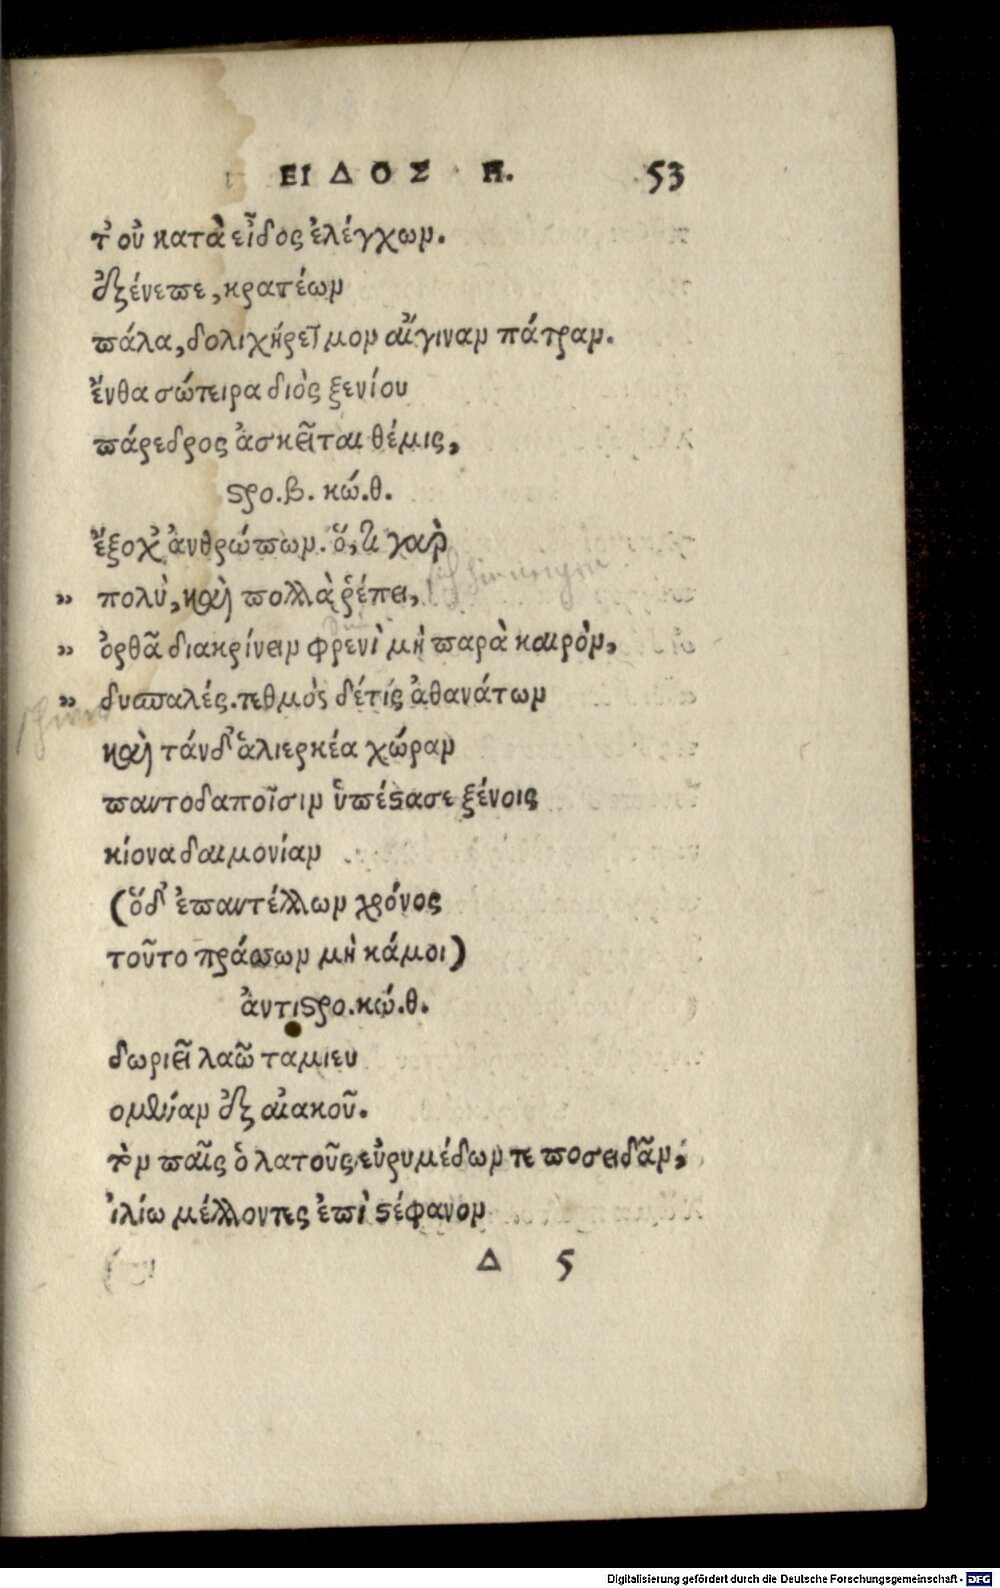 ΕΙΔΟΣ Η. 53
τ' οὐ κατὰ εἶδος ἐλέγχων.
ἐξένεπε, κρατέων
πάλα, δολιχήρετμον αἴγιναν πάτραν.
ἔνθα σώτειρα διὸς ξενίου
πάρεδρος ἀσκεῖται θέμις,
στρο.β. κώ.θ.
ἔξοχ' ἀνθρώπων. ὅ,τι γὰρ
» πολὺ, καὶ πολλὰ ῥέπει,
» ὀρθᾶ διακρίνειν φρενὶ μὴ παρὰ καιρὸν,
» δυσπαλές. τεθμὸς δέ τίς ἀθανάτων
καὶ τάνδ' ἁλιερκέα χώραν
παντοδαποῖσιν ὑπέστασε ξένοις
κίονα δαιμονίαν
(ὅδ' ἐπαντέλλων χρόνος
τοῦτο πράσσων μὴ κάμοι)
ἀντιστρο.κώ.θ.
δωριεῖ λαῶ ταμιευ
ομέναν ἐξ αἰακοῦ.
τὸν παῖς ὁ λατοῦς, εὐρυμέδων τε ποσειδᾶν,
ἰλίω μέλλοντες ἐπὶ στέφανον
Δ 5
Digitalisierung gefördert durch die Deutsche Forschungsgemeinschaft - DFG